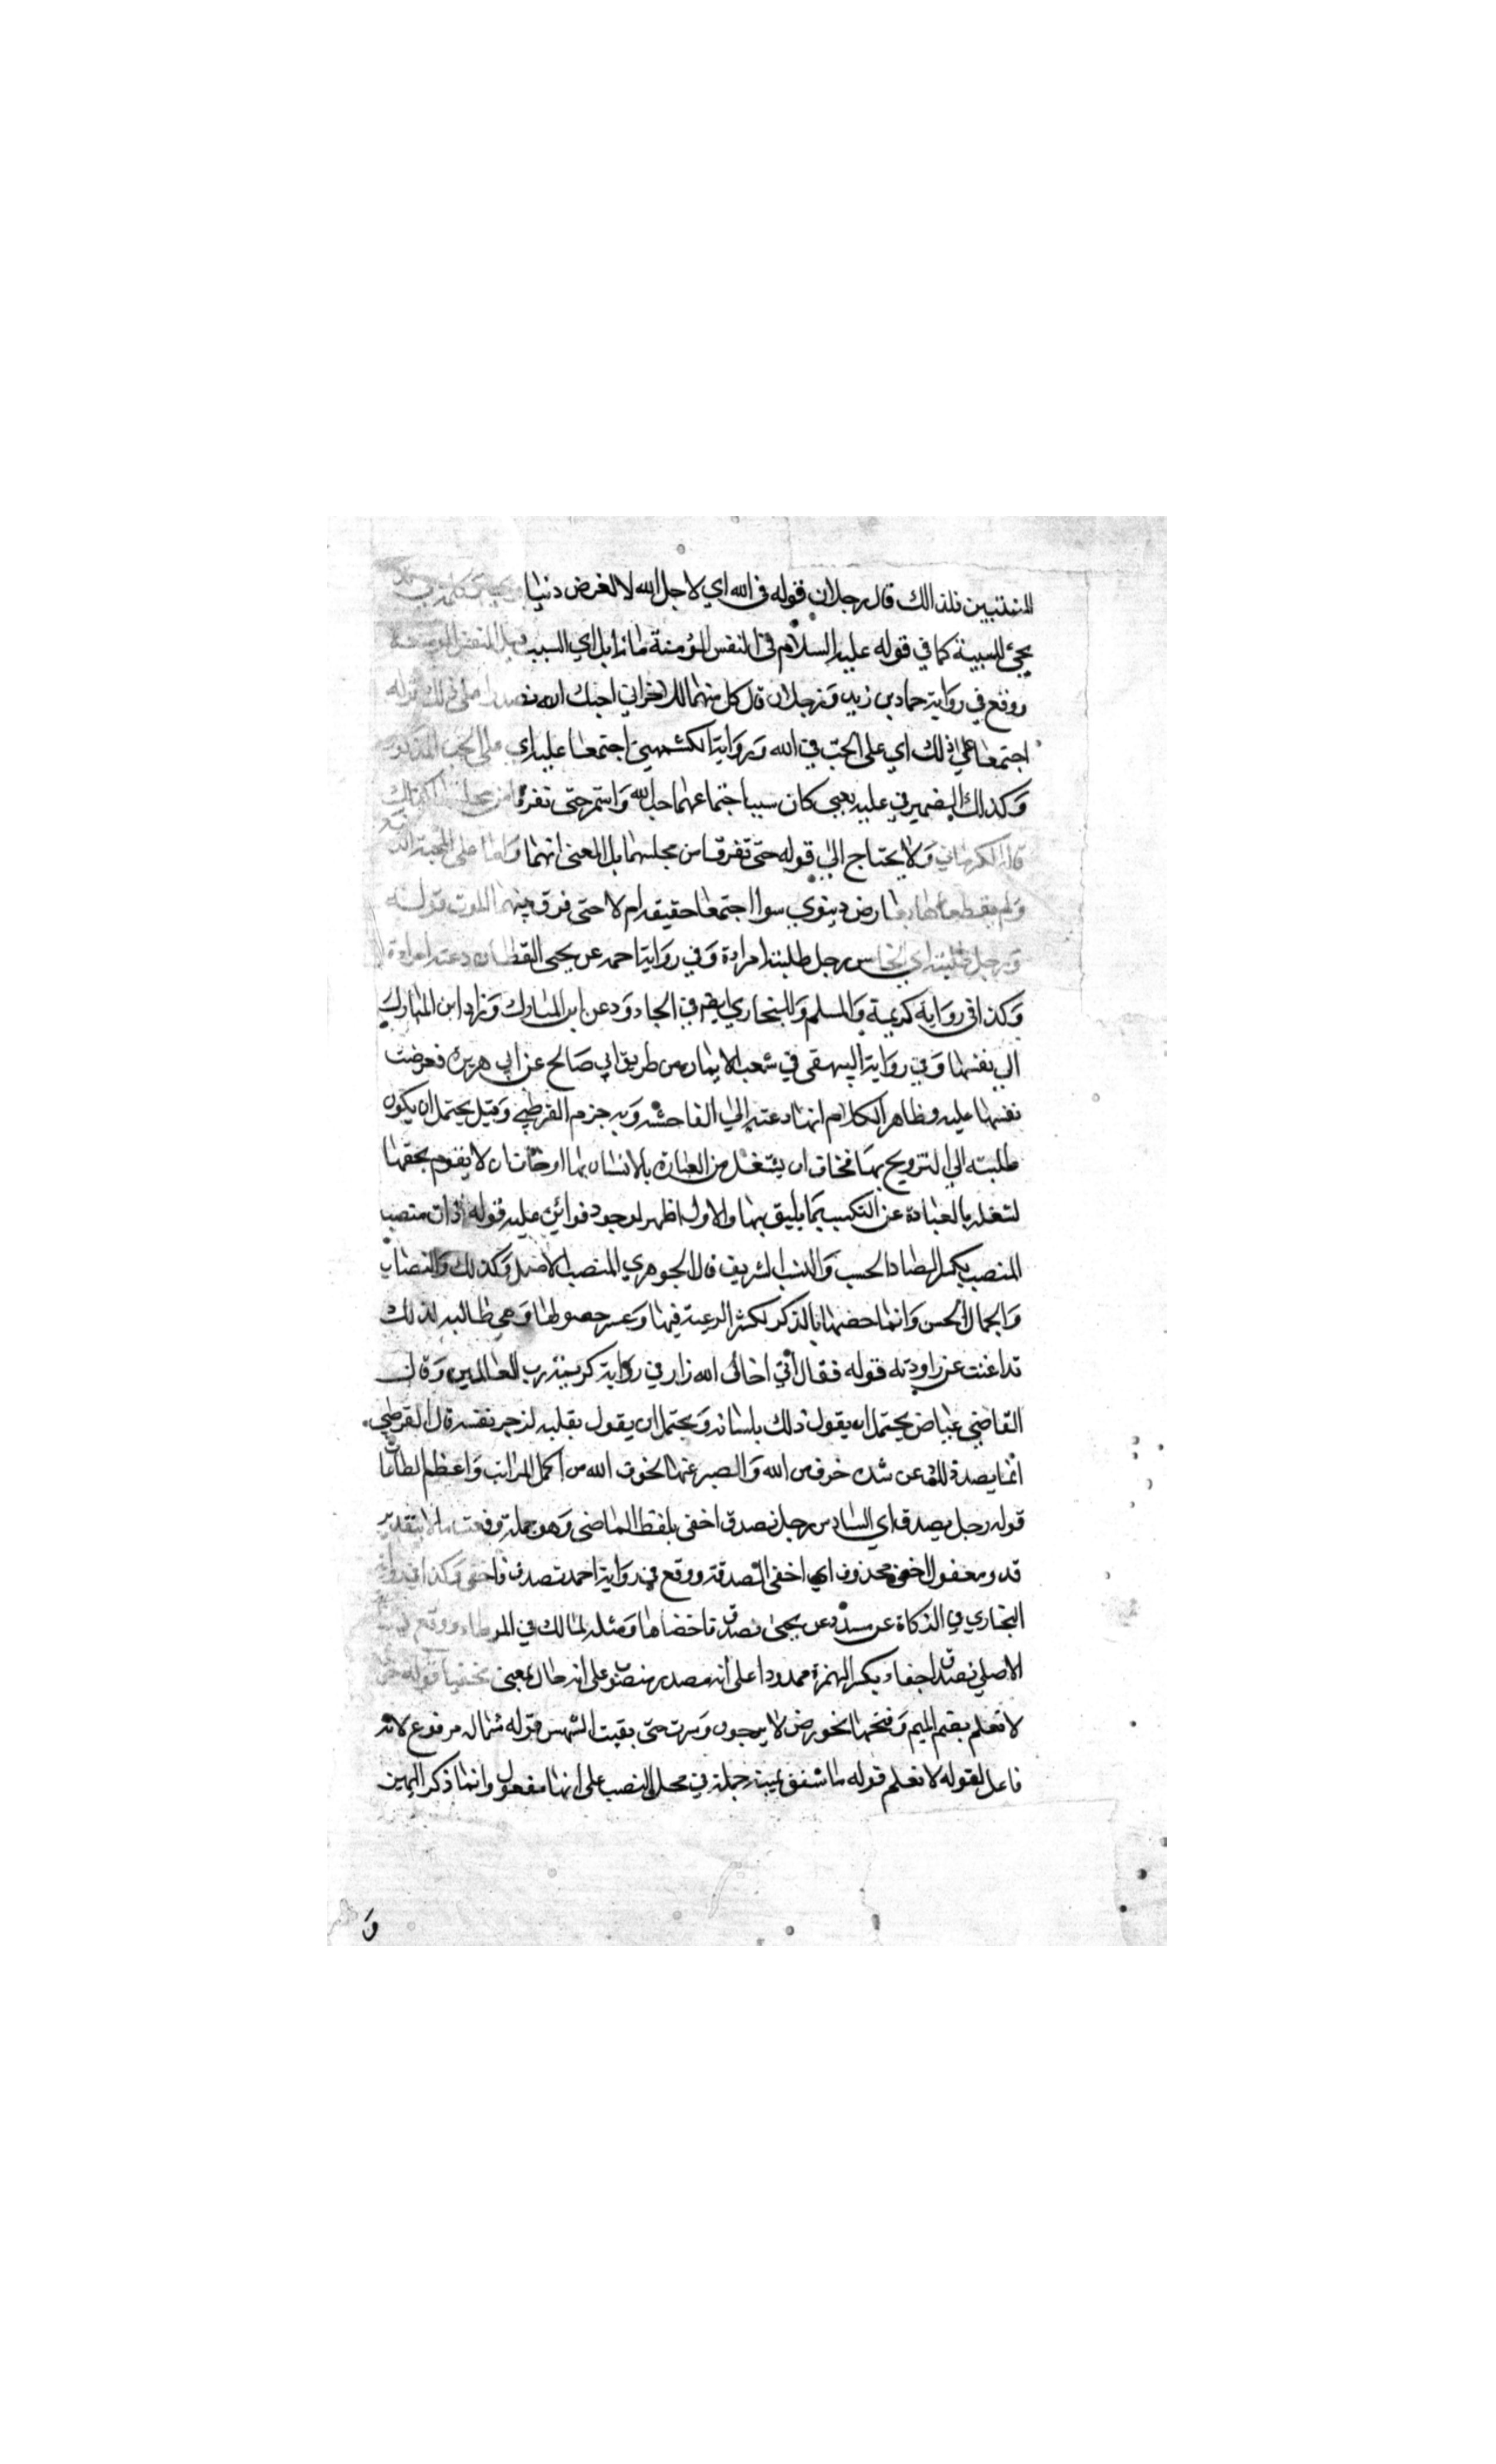 للمنتسبين فلذالك قال رجلان قوله في الله اي لاجل الله لا لغرض دنيا وي وكلمة في قد
يجئ للسببية كما في قوله عليه السلام في النفس المؤمنة مائة ابل اي بسبب قتل النفس المؤمنة
ووقع في رواية حماد بن زيد ورجلان قال كل منهما للاخر اني احبك في الله فصدرا على ذلك قوله
اجتمعا على ذلك اي على الحب في الله وبرواية الكشمهيني اجتمعا عليه اي على الحب المذكور
وكذلك الضمير في عليه يعني كان سبب اجتماعهما حب الله واستمر حتى تفرقا من مجلسهما كذلك
قال الكرماني ولا يحتاج الى قوله حتى تفرقا من مجلسهما بل المعنى انهما داما على المحبة الدينية
ولم يقطعاها بعارض دينوي سوا اجتمعا حقيقة ام لا حتى فرق بينهما الموت قوله
ورجل طلبته اي الخامس رجل طلبته امراة وفي رواية احمد عن يحيى القطان دعته امراة
وكذا في رواية كريمة والمسلم وللبخاري ايضم في الحاد ود عن ابن المبارك وزاد ابن المبارك
الى نفسها وفي رواية البيهقي في شعب الايمان من طريق ابي صالح عن ابي هريرة فعرضت
نفسها عليه وظاهر الكلام انها دعته الى الفاحشة وبه جزم القرطبي وقيل يحتمل ان يكون
طلبته الى التزويج بها فخاف ان يشتغل عن العبادة بالانسان بها او خاف ان لا يقوم بحقها
لشغله بالعبادة عن التكسب بما يليق بها والاول اظهر لوجود قرائن عليه قوله ذات منصب
المنصب بكسر الصاد الحسب والنسب الشريف قال الجوهري المنصب الاصل وكذلك والنصاب
والجمال الحسن وانما حضها بالذكر لكثرة الرغبة فيها وعسر حصولها وهي طالبه لذلك
قد اغنت عن راودته قوله فقال اني اخاف الله زاد في رواية كريمة رب العالمين وقال
القاضي عياض يحتمل ان يقول ذلك بلسانه ويحتمل ان يقول بقلبه لزجر نفسه قال القرطبي
انما يصدر ذلك عن شدة خوف من الله والصبر عنها لخوف الله من اكمل المراتب واعظم الطاعات
قوله رجل تصدق اي السادس رجل تصدق اخفى بلفظ الماضي وهو جملة وقعت حالا بتقدير
قد ومفعول اخفى محذوف اي اخفى الصدقة ووقع في رواية احمد تصدق فاخفى وكذا في رواية
البخاري في الزكاة عن مسدد عن يحيى تصدق فاخفاها ومثله لمالك في الموطاء ووقع في رواية
الاصلي تصدق اخفاء بكسر الهمزة ممدودا على انه مصدر منصوب على انه حال بمعنى مخفيا قوله حتى
لا تعلم بضم الميم وفتحها نحو مرض لا يرجون وسرت حتى بقيت الشمس قوله شماله مرفوع لانه
فاعل لقوله لا تعلم قوله ما تنفق يمينه جملة في محل النصب على انها مفعول وانما ذكر اليمين
و